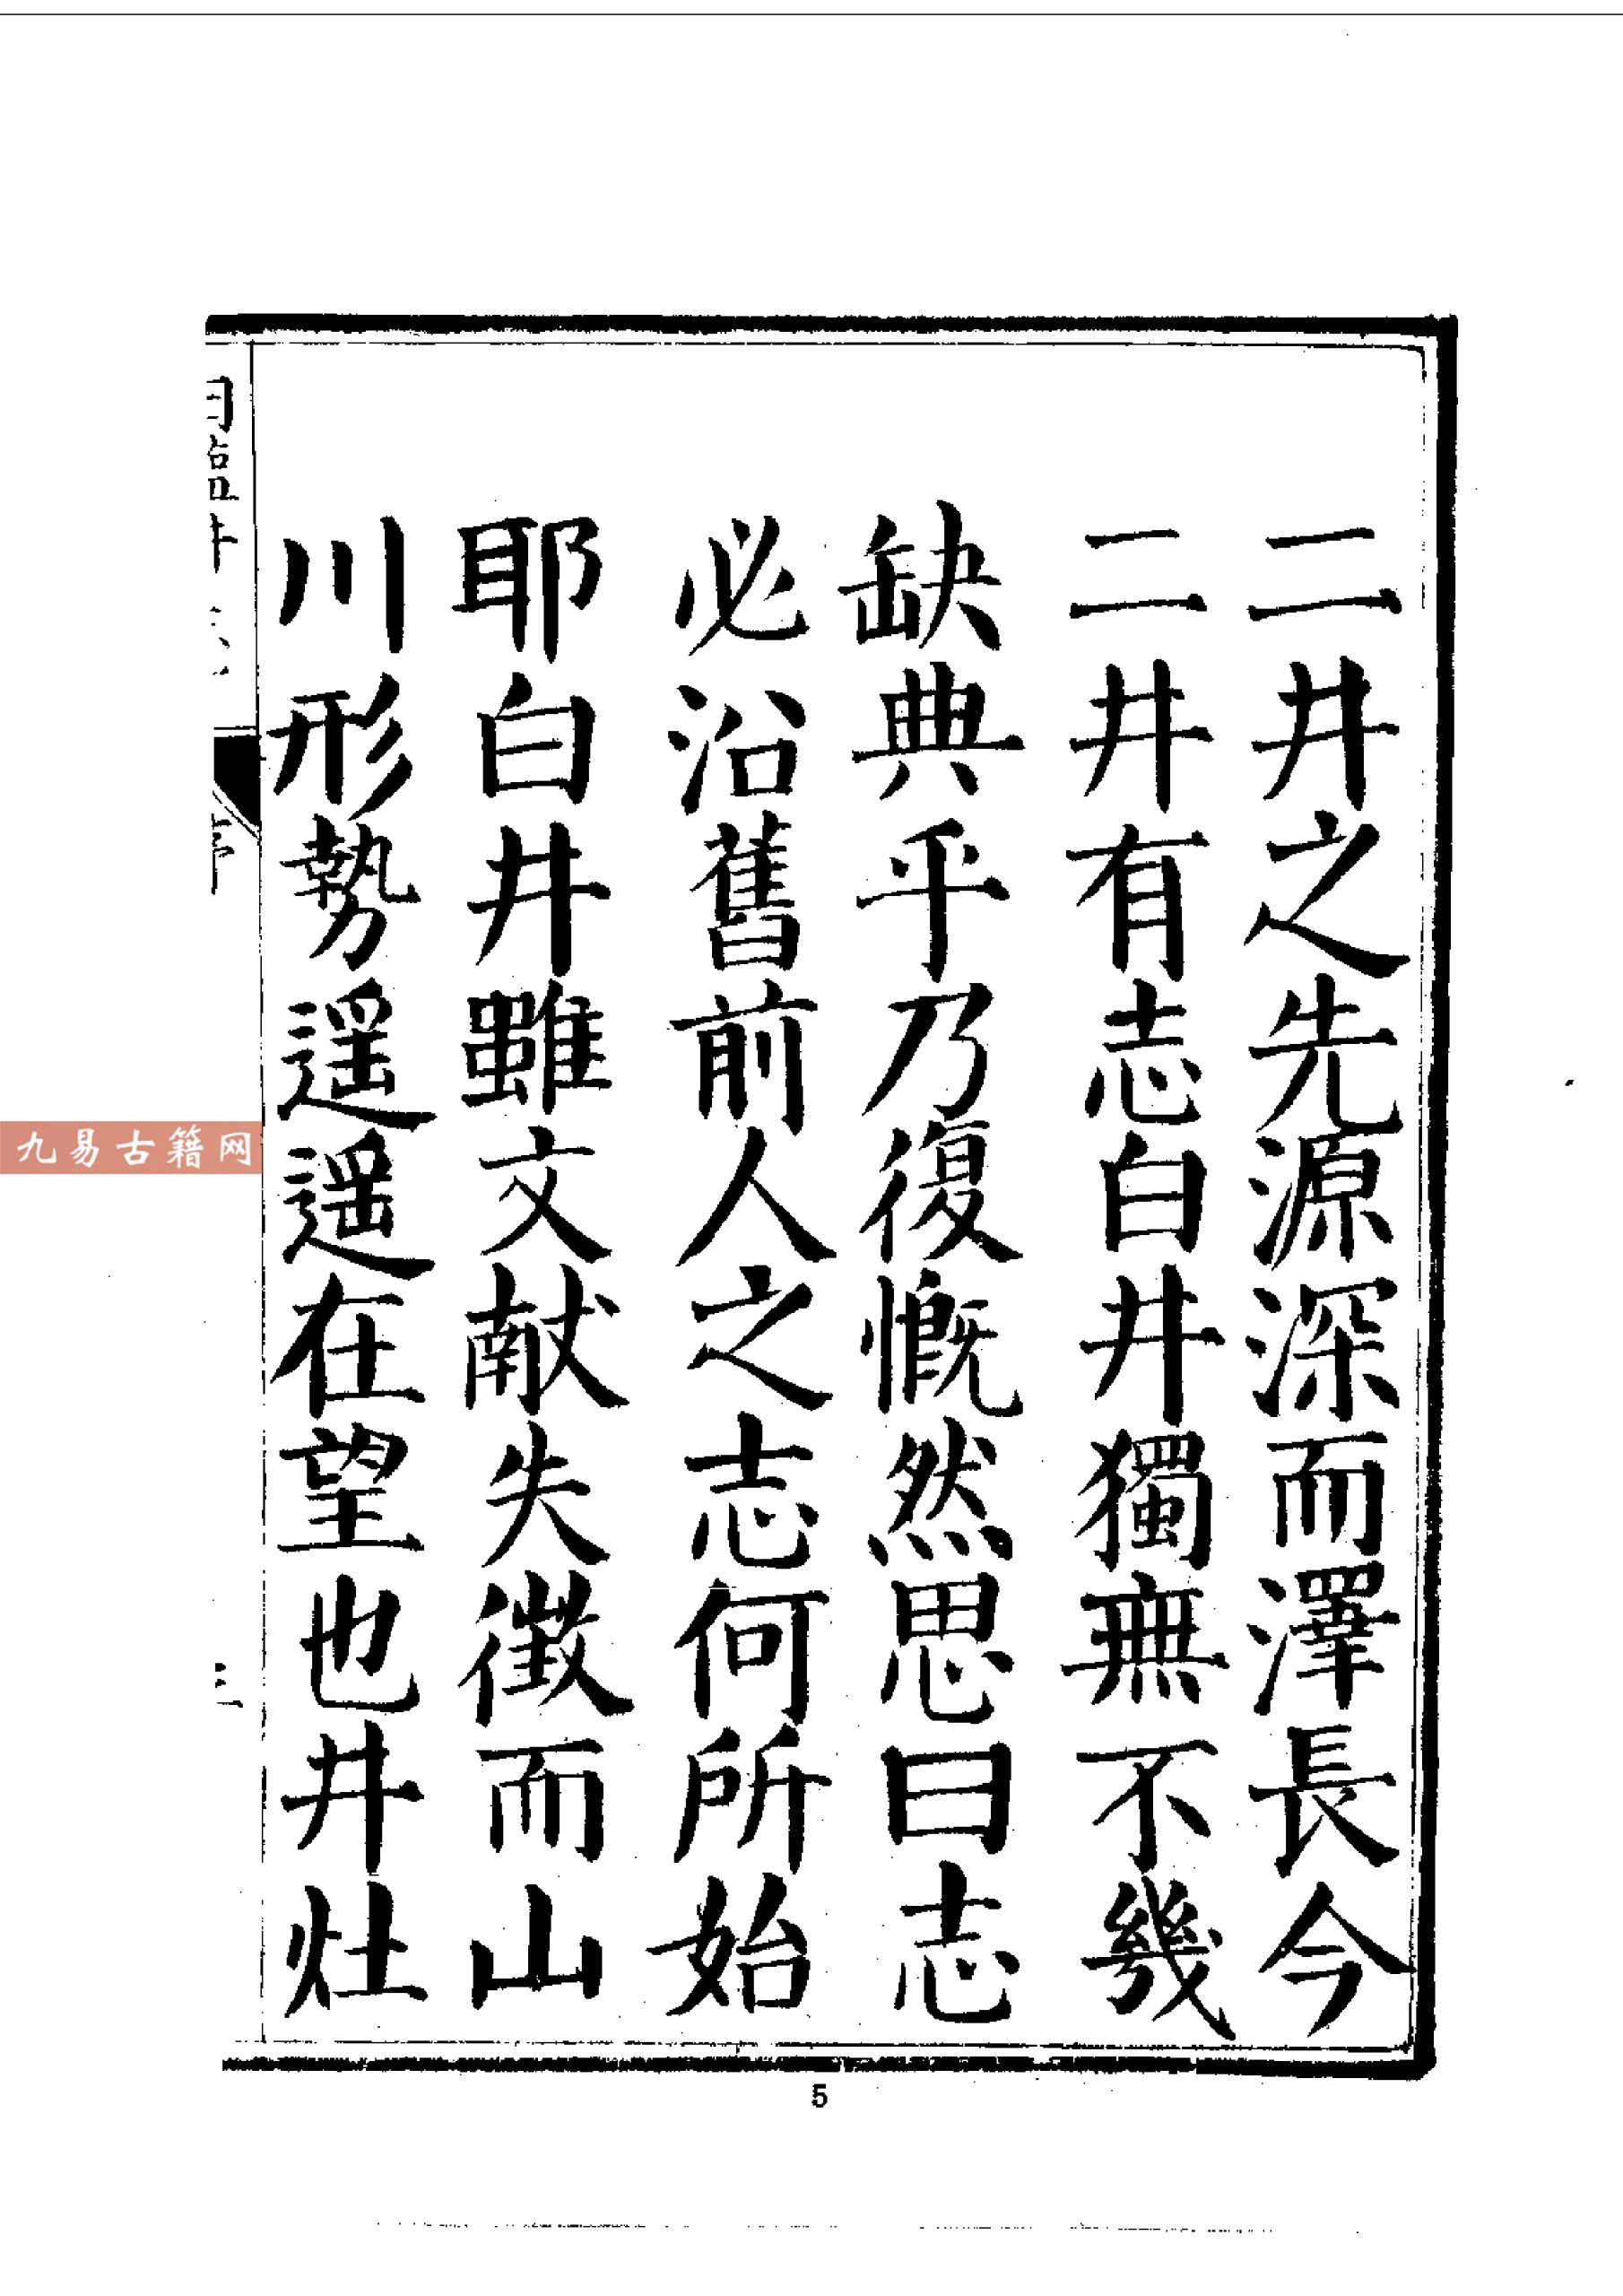 二井之先源深而澤長今
二井有志白井獨無不幾
缺典乎乃復慨然思曰志
必沿舊前人之志何所始
耶白井雖文献失徴而山
川形勢遥遥在望也井灶
序
三
九易古籍网
5